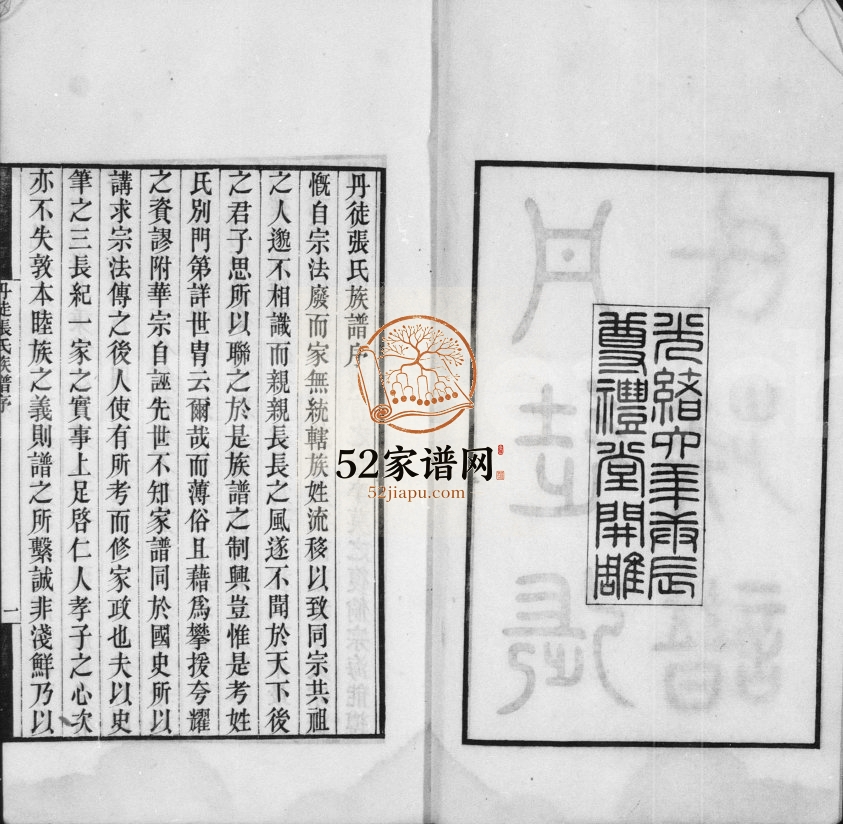 光緒六年庚辰
尊禮堂開雕
丹徒張氏族譜序
慨自宗法廢而家無統轄族姓流移以致同宗共祖
之人邈不相識而親親長長之風遂不聞於天下後
之君子思所以聯之於是族譜之制興豈惟是考姓
氏別門第詳世胄云爾哉而薄俗且藉爲攀援夸耀
之資謬附華宗自誣先世不知家譜同於國史所以
講求宗法傳之後人使有所考而修家政也夫以史
筆之三長紀一家之實事上足啓仁人孝子之心次
亦不失敦本睦族之義則譜之所繫誠非淺鮮乃以
丹徒張氏族譜序
一
52家谱网
52jiapu.com